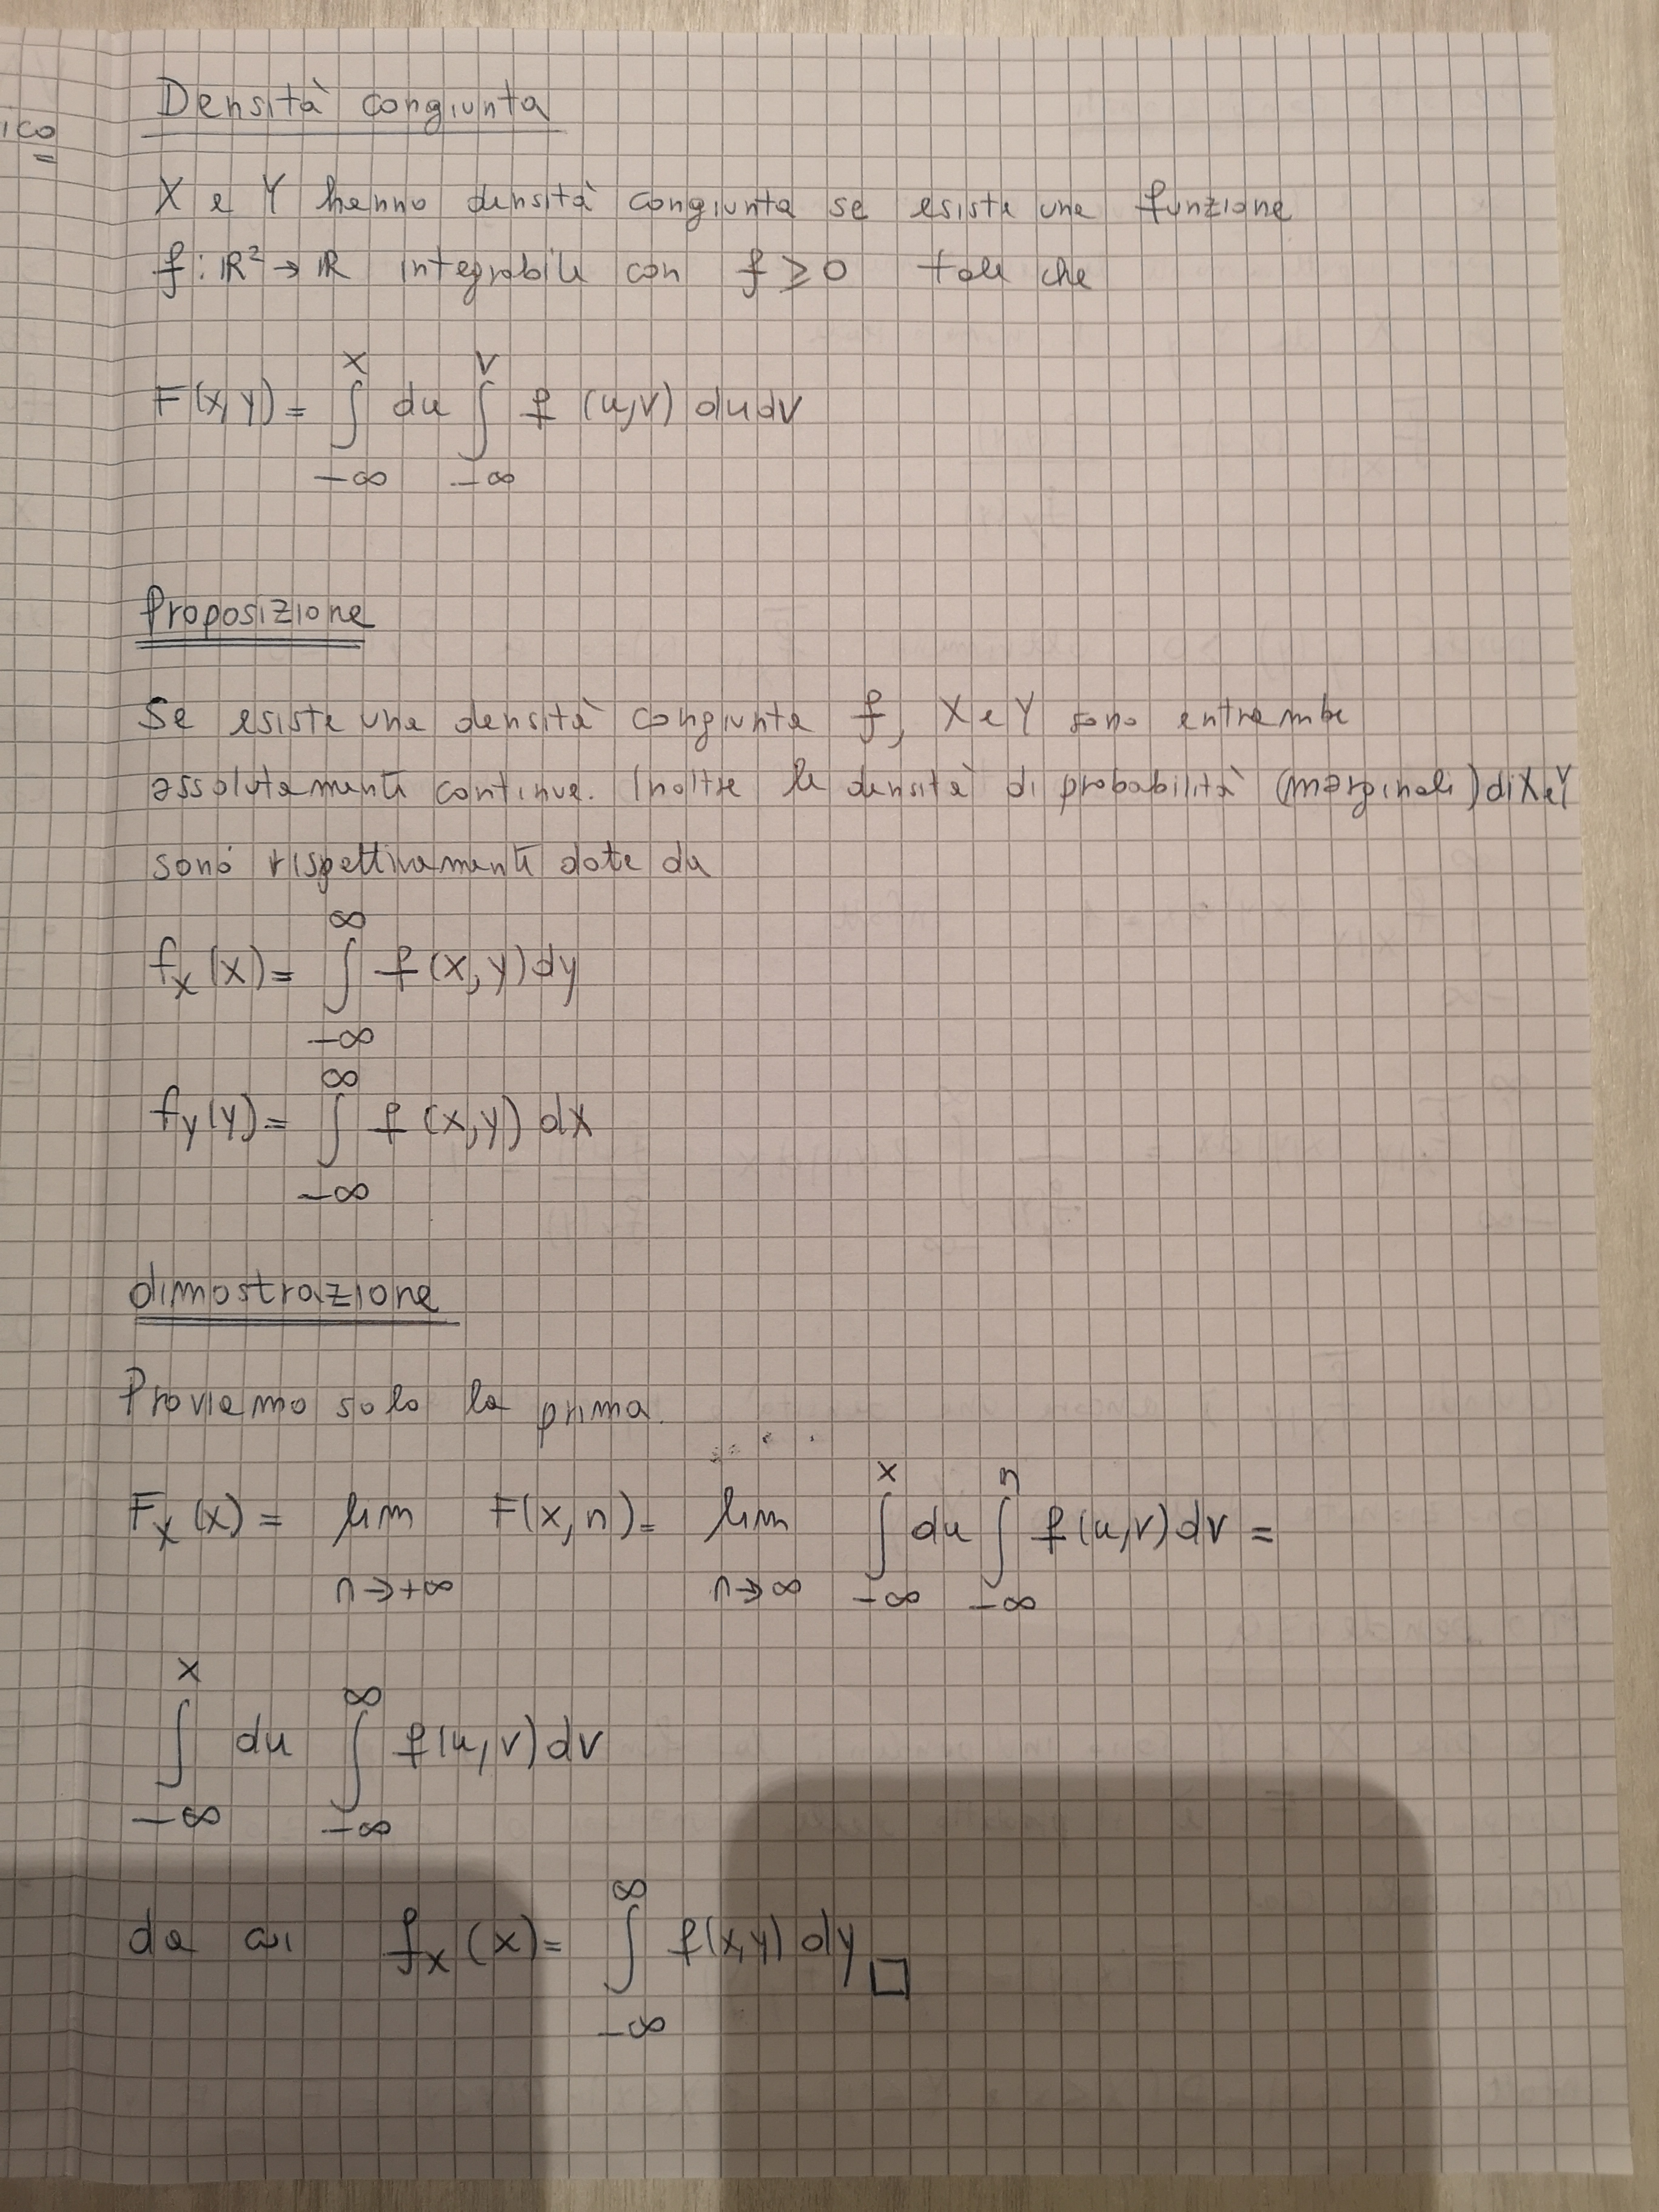 ico
Densità congiunta
X e Y hanno densità congiunta se esiste una funzione
f: ℝ² → ℝ integrabile con f ≥ 0 tale che
F(x,y) = ∫_{-∞}^{x} du ∫_{-∞}^{v} f (u,v) du dv
Proposizione
Se esiste una densità congiunta f, X e Y sono entrambe
assolutamente continue. Inoltre le densità di probabilità (marginali) di X e Y
sono rispettivamente date da
f_X (x) = ∫_{-∞}^{∞} f (x,y) dy
f_Y (y) = ∫_{-∞}^{∞} f (x,y) dx
dimostrazione
Proviamo solo la prima.
F_X (x) = lim_{n→+∞} F(x,n) = lim_{n→∞} ∫_{-∞}^{x} du ∫_{-∞}^{n} f (u,v) dv =
∫_{-∞}^{x} du ∫_{-∞}^{∞} f(u,v) dv
da cui f_X (x) = ∫_{-∞}^{∞} f(x,y) dy □